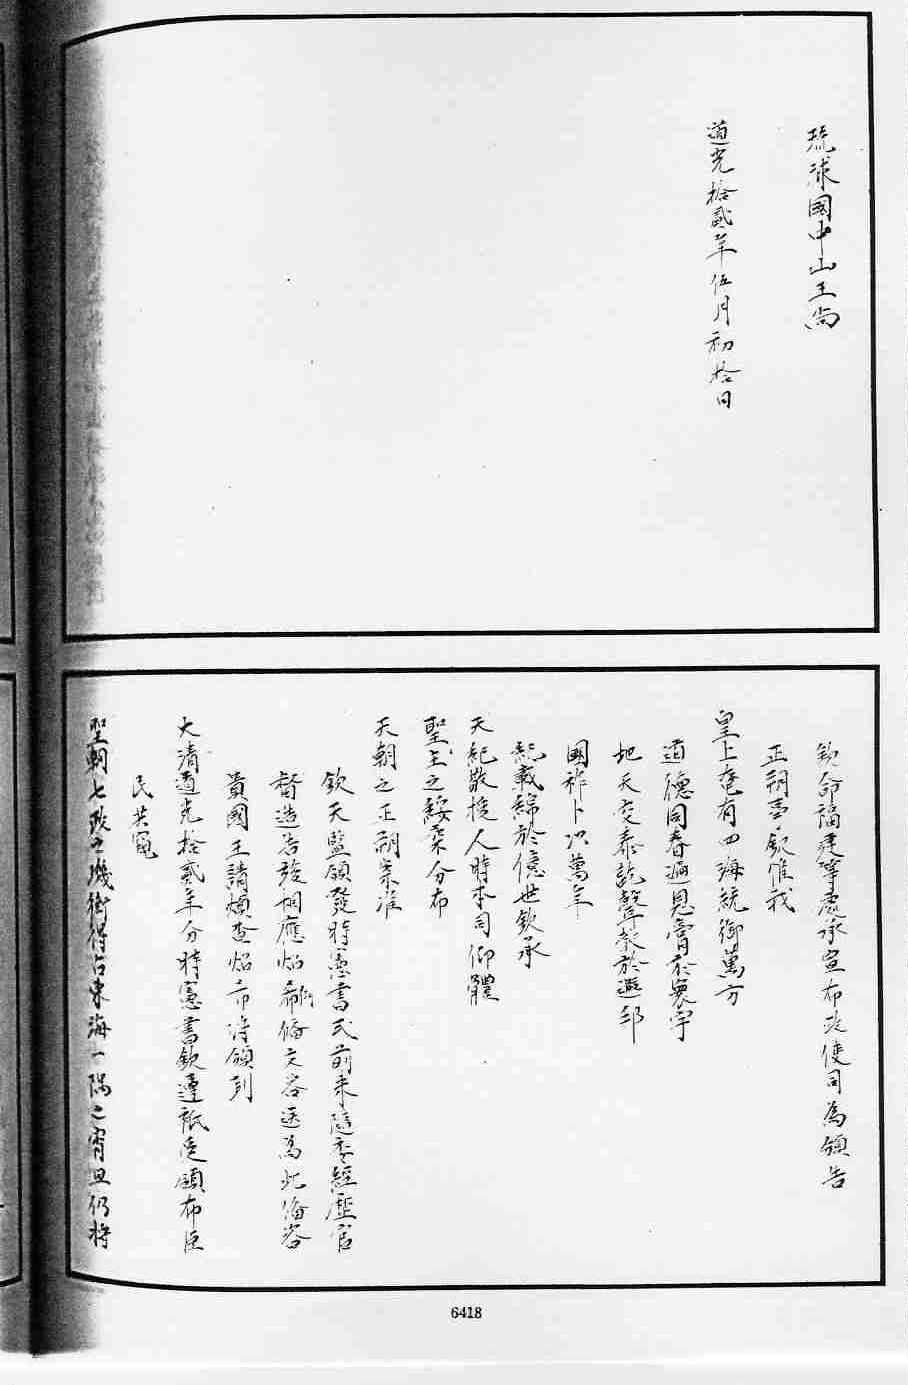 琉球國中山王尚
道光拾貳年伍月初拾日
欽命福建等處承宣布政使司為頒告
正朔事欽惟我
皇上奄有四海統御萬方
道德同春遍恩膏於寰宇
地天交泰訖聲教於遐邦
國祚卜以萬年
紀載綿於億世欽承
天紀敬授人時本司仰體
聖主之綏來分布
天朝之正朔案准
欽天監頒發時憲書式前來隨委經歷官
督造告竣相應照術備文咨送為此備咨
貴國王請煩查照布詩頒到
大清道光拾貳年分時憲書欽遵祇受頒布臣
民共窺
聖朝七政之璣衡得占東海一隅之宵旦仍將
6418